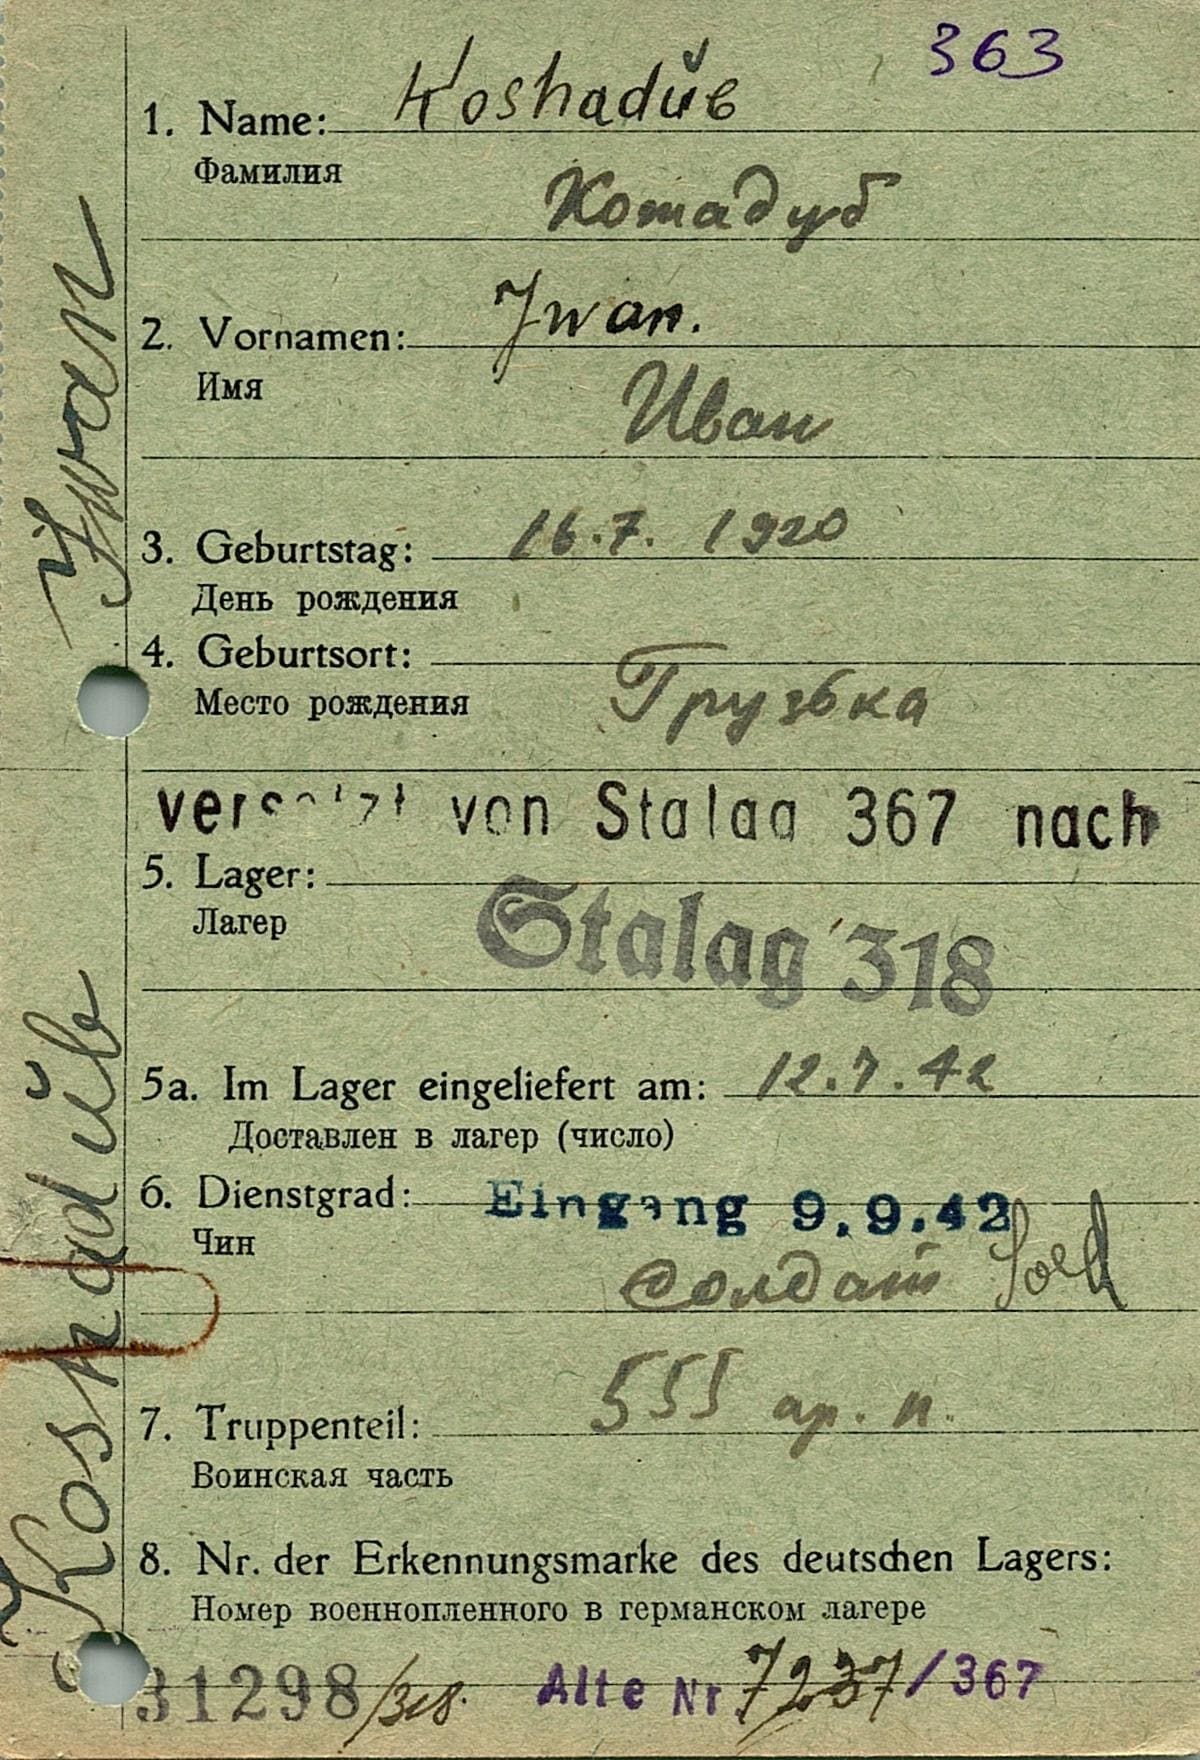 363
1. Name: Koshadŭb
Фамилия
Кошадуб
2. Vornamen: Iwan.
Имя
Иван
3. Geburtstag: 16.7. 1920
День рождения
4. Geburtsort:
Место рождения Грузька
versetzt von Stalag 367 nach
5. Lager:
Лагер
Stalag 318
5a. Im Lager eingeliefert am: 12.7.42
Доставлен в лагер (число)
6. Dienstgrad: Eingang 9.9.42
Чин
солдат Sold
7. Truppenteil: 555 ар. п.
Воинская часть
8. Nr. der Erkennungsmarke des deutschen Lagers:
Номер военнопленного в германском лагере
31298/318. Alte Nr. 7237/367
Koshadŭb Iwan